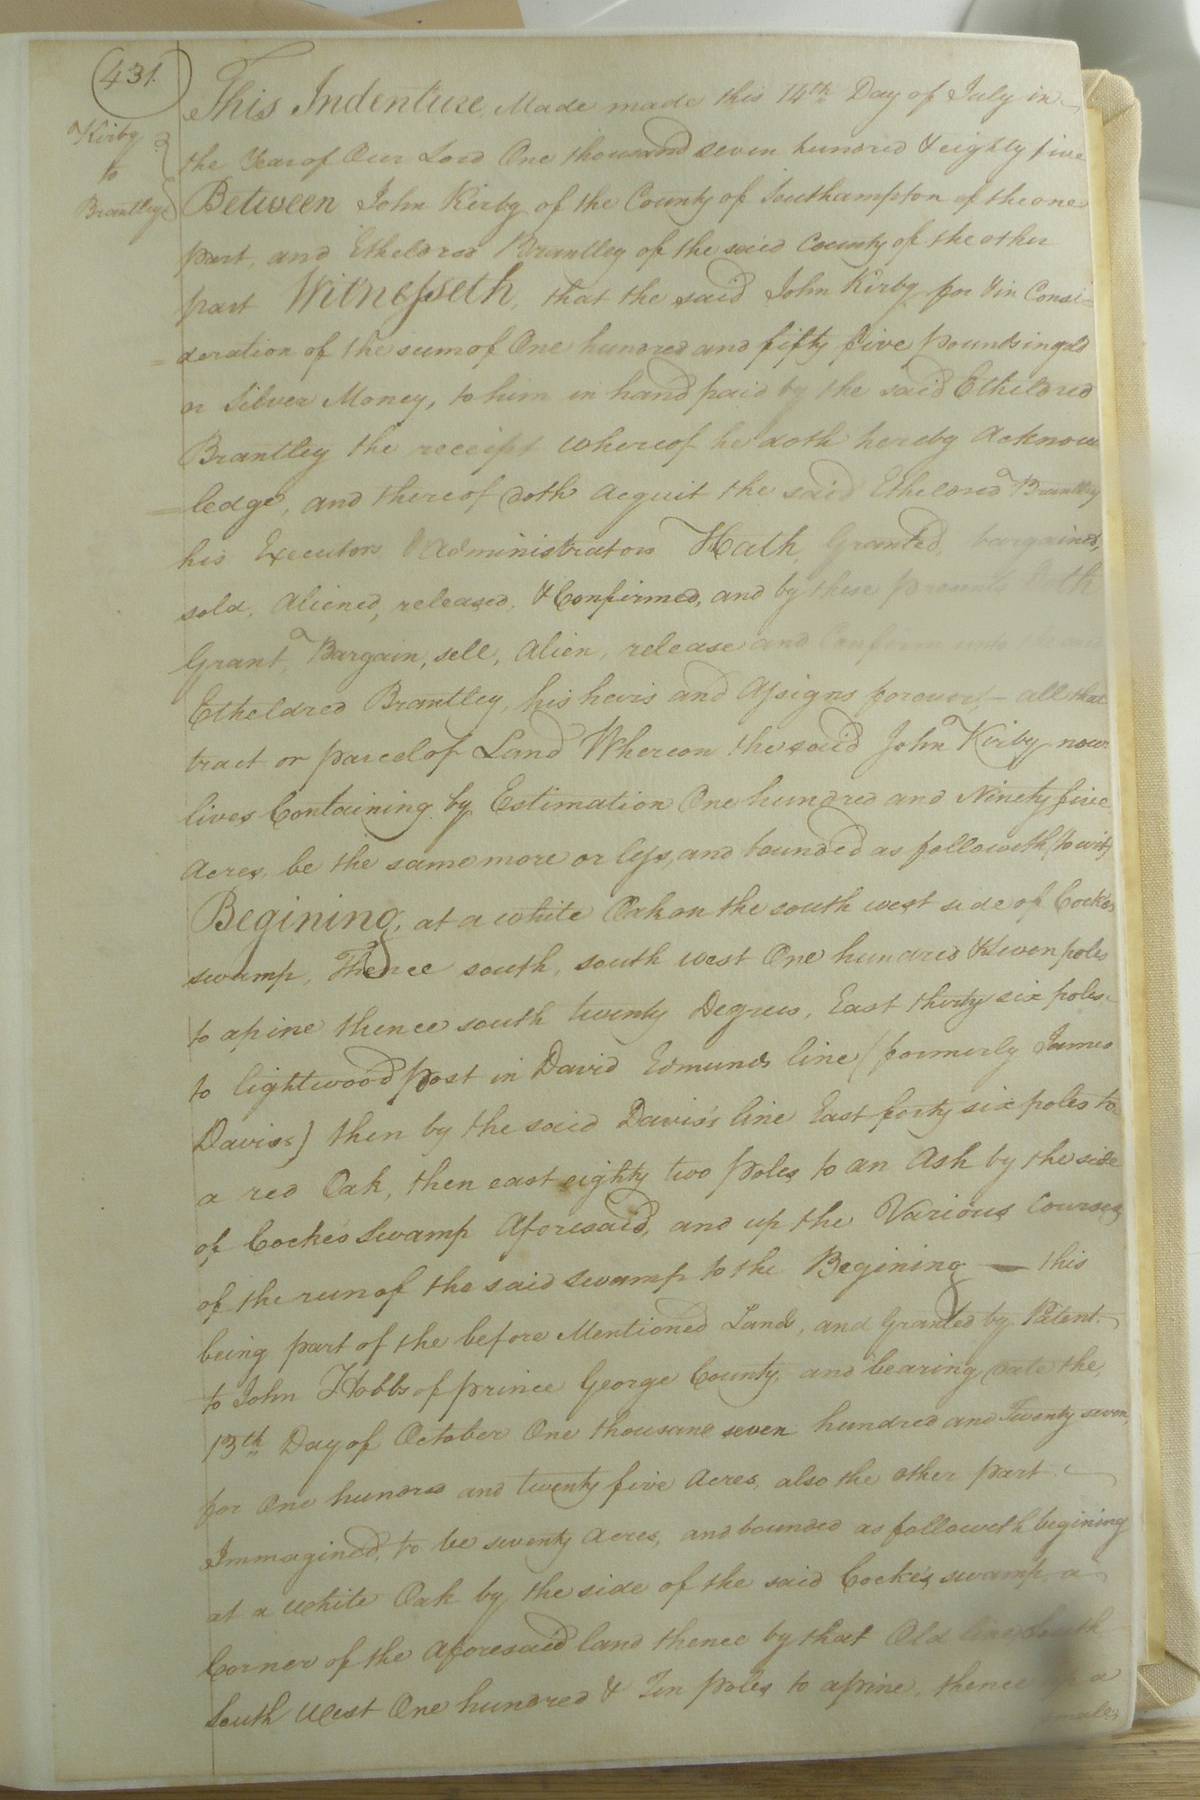 431.
Kirby
to
Brantley
This Indenture, Made made this 14th Day of July in
the Year of Our Lord One thousand seven hundred & eighty five
Between John Kirby of the County of Southampton of the one
part, and Etheldred Brantley of the said County of the other
part Witnesseth, that the said John Kirby for & in Consi=
=deration of the sum of One hundred and fifty five pounds in gold
or Silver Money, to him in hand paid by the said Etheldred
Brantley the receipt whereof he doth hereby Acknow
=ledge, and thereof doth acquit the said Etheldred Brantley
his Executors & Administrators Hath Granted, bargained,
sold, Aliened, released, & Confirmed, and by these presents Doth
Grant, Bargain, sell, Alien, release and Confirm unto
Etheldred Brantley, his heirs and Assigns forever,— all that
tract or parcel of Land Whereon the said John Kirby now
lives Containing by Estimation One hundred and Ninety five
Acres, be the same more or less, and bounded as followeth (to wit)
Begining, at a white Oak on the south west side of Cocke's
swamp, Thence south, south west One hundred & seven poles
to a pine thence south twenty Degrees, East thirty six poles
to lightwood post in David Edmunds line (formerly James
Davis's) then by the said Davis's line East forty six poles to
a red Oak, then east eighty two poles to an Ash by the side
of Cocke's Swamp Aforesaid, and up the Various Courses
of the run of the said swamp to the Begining — this
being part of the before Mentioned Land, and Granted by Patent
to John Hobbs of prince George County, and bearing date the
13th Day of October One thousand seven hundred and Twenty seven,
for One hundred and twenty five Acres, also the other part
Immagined, to be seventy Acres, and bounded as followeth begining
at a white Oak by the side of the said Cocke's swamp a
Corner of the Aforesaid land thence by that Old line South
South West One hundred & Ten poles to a pine, thence a